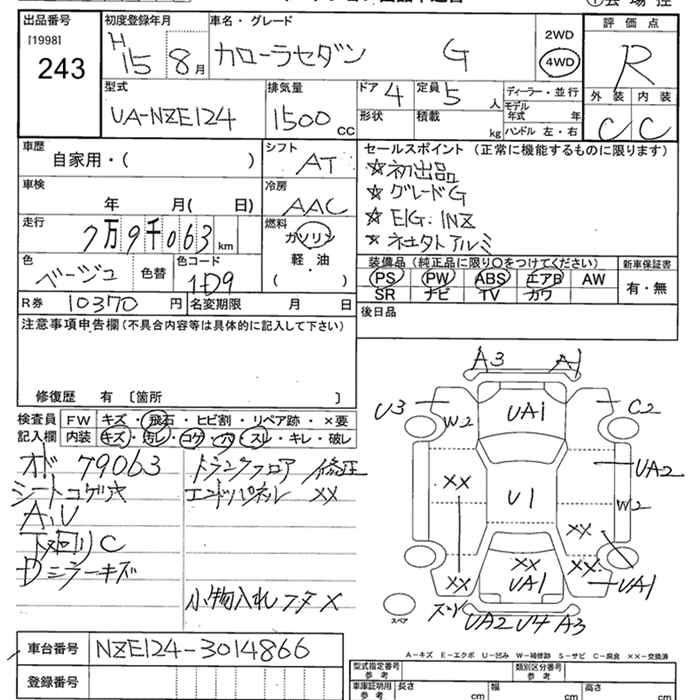 出品番号 初度登録年月 車名・グレード 評価点
[1998] 243
H15 8月 カローラセダン G
2WD
4WD
R
型式 排気量 ドア 4 定員 5人 ディーラー・並行 外装 内装
UA-NZE124 1500 CC
形状 積載 kg
モデル年式 年
ハンドル 左・右
C C
車歴 自家用・( )
シフト AT
セールスポイント (正常に機能するものに限ります)
☆初出品
★グレードG
★E/G.1NZ
★ネオタトアルミ
車検 年 月( 日)
冷房 AAC
走行 7万9千063 km
燃料 ガソリン
軽・油
( )
色 ベージュ 色替 色コード 1D9
装備品 (純正品に限り○をつけてください) 新車保証書
PS PW ABS エアB AW
SR ナビ TV カワ
有・無
R券 10370 円 名変期限 月 日
後日品
注意事項申告欄 (不具合内容等は具体的に記入して下さい)
修復歴 有 〔箇所 〕
検査員 FW キズ・飛石・ヒビ割・リペア跡・×要
記入欄 内装 キズ・汚レ・コゲ・穴・スレ・キレ・破レ
オド 79063 トランクフロア 修正
シートコゲ穴 エンドパネル XX
A,U
下廻りC
Dミラーキズ
小物入れフタX
A3 A1
U3 W2 UA1 C2
UA2
XX U1 W2
XX
XX XX XX
UA1 UA1
スペア
UA2 U4 A3
車台番号 NZE124-3014866
登録番号
A-キズ E-エクボ U-凹み W-補修跡 S-サビ C-腐食 XX-交換済
型式指定番号 参考 類別区分番号 参考
車庫証明用 参考 長さ cm 幅 cm 高さ cm